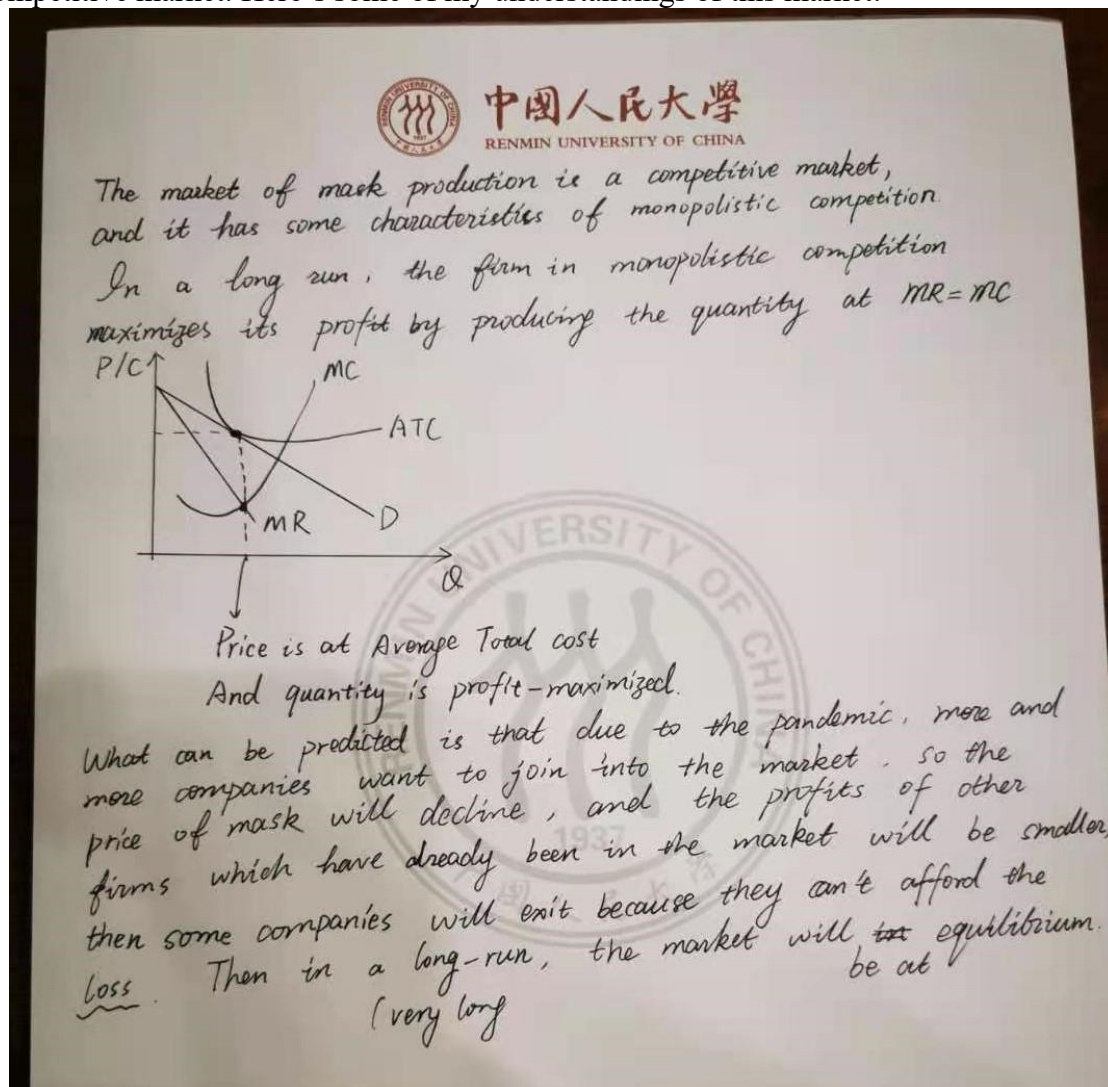 中國人民大學
RENMIN UNIVERSITY OF CHINA
The market of mask production is a competitive market,
and it has some characteristics of monopolistic competition.
In a long run, the firm in monopolistic competition
maximizes its profit by producing the quantity at MR=MC
P/C
MC
ATC
MR
D
Q
Price is at Average Total cost
And quantity is profit-maximized.
What can be predicted is that due to the pandemic, more and
more companies want to join into the market. so the
price of mask will decline, and the profits of other
firms which have already been in the market will be smaller,
then some companies will exit because they can't afford the
loss. Then in a long-run, the market will be at equilibrium.
(very long
RENMIN UNIVERSITY OF CHINA
1937